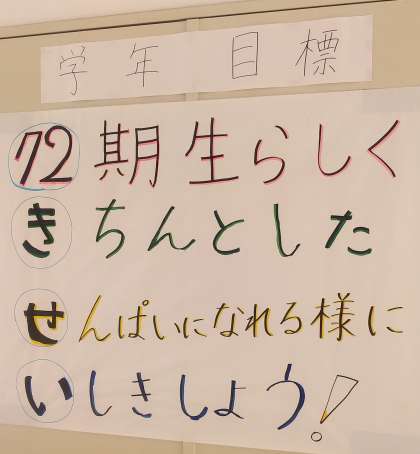 学年目標
72期生らしく
きちんとした
せんぱいになれる様に
いしきしよう!